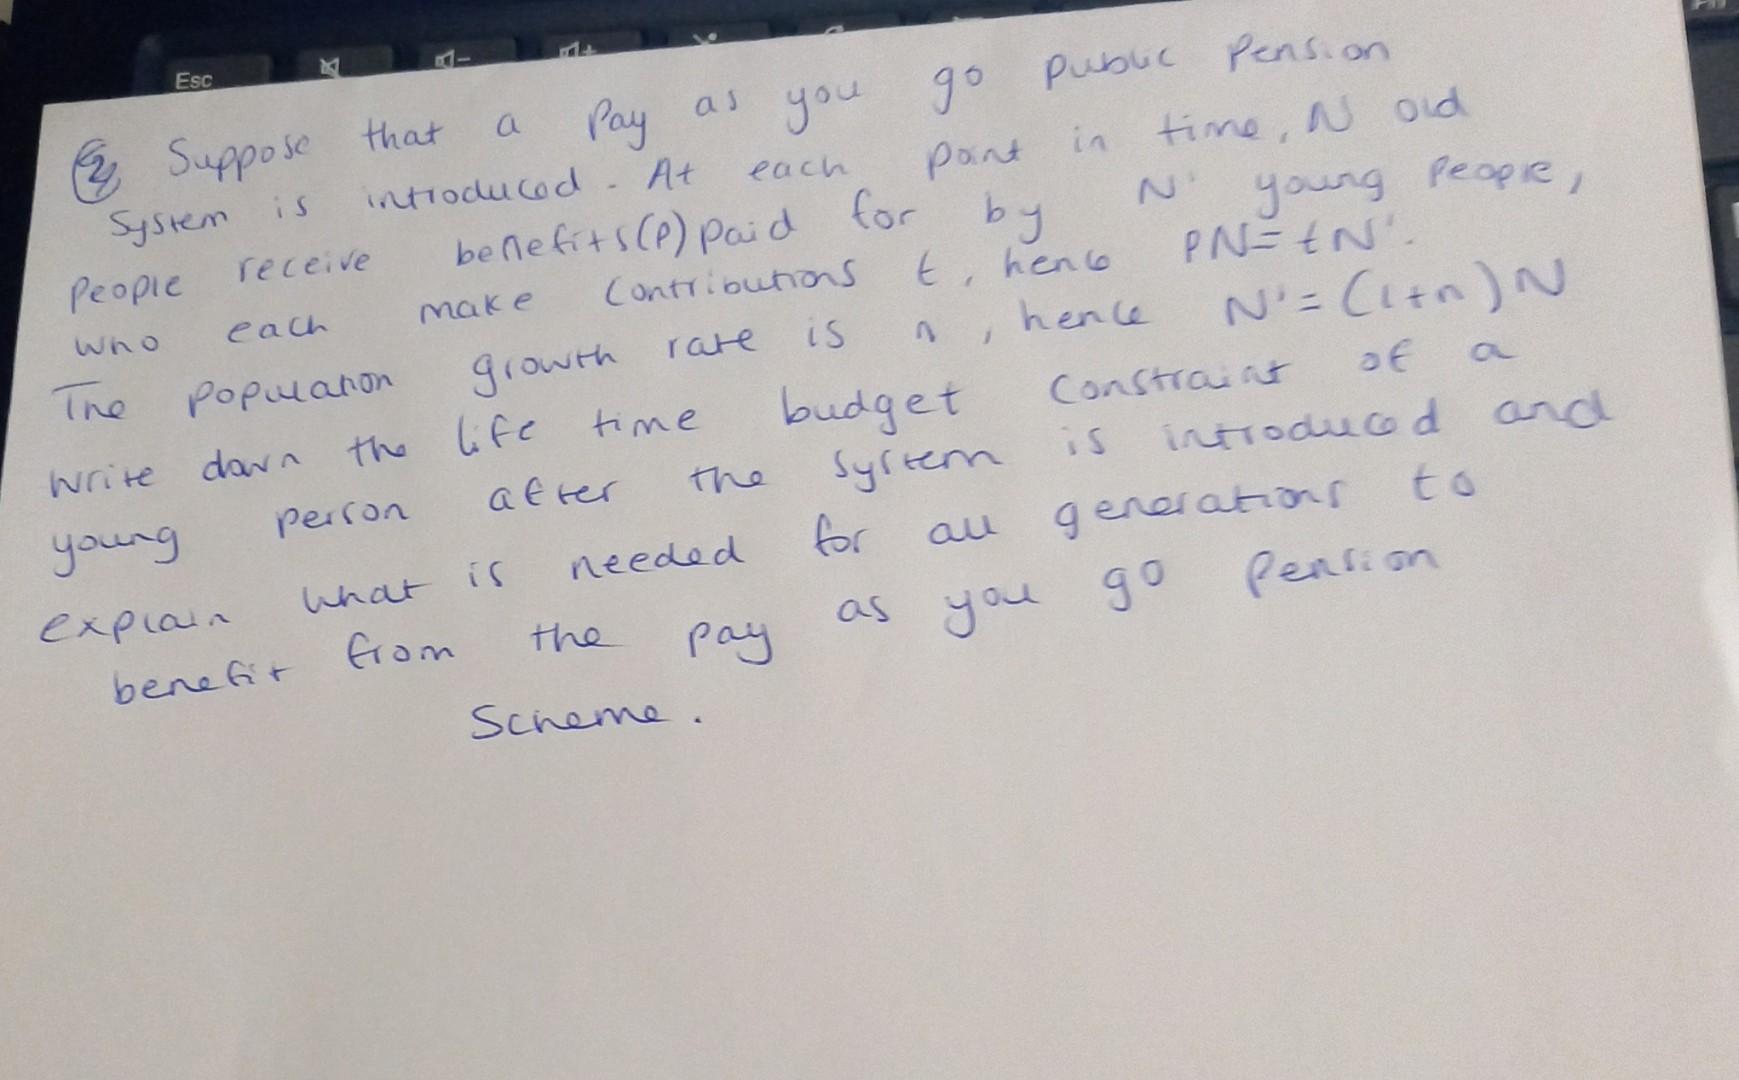 Esc
Q Suppose that a Pay as you go public Pension
System is introduced. At each point in time, N old
People receive benefits(P) paid for by N' young People,
who each make contributions t, hence PN = tN'.
The population growth rate is n, hence N' = (1+n)N
write down the life time budget constraint of a
young person after the system is introduced and
explain what is needed for all generations to
benefit from the pay as you go Pension
Scheme.